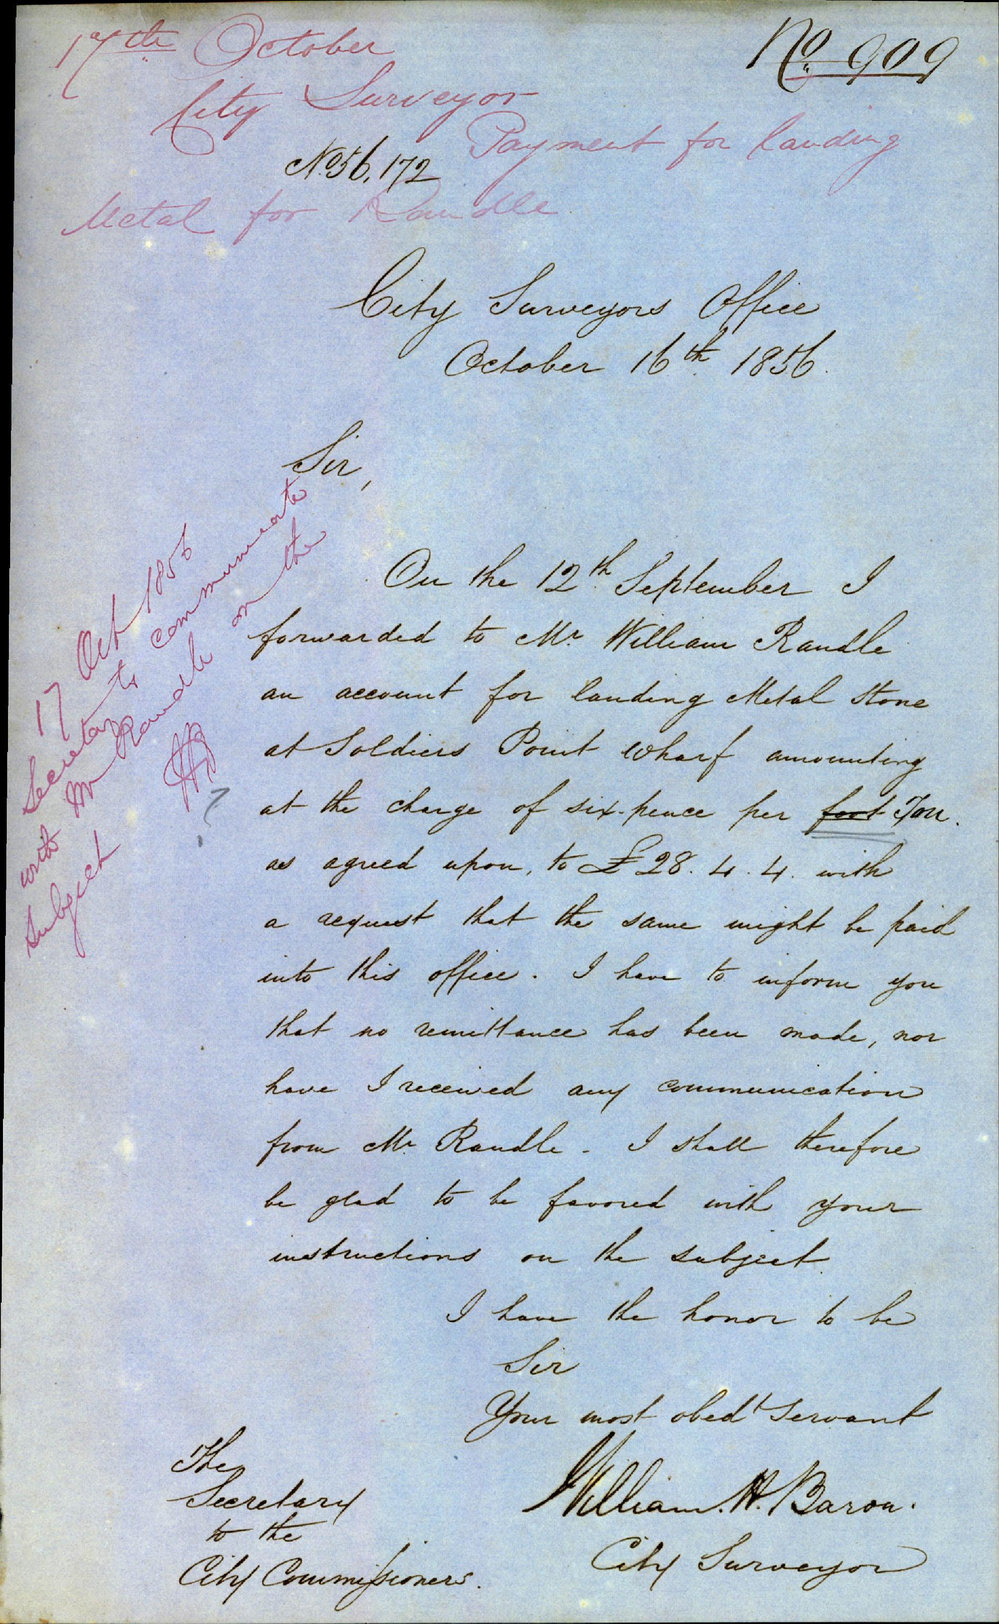 17th October
No. 909
City Surveyor
Payment for landing
No 56,172
Metal for Randle
City Surveyors Office
October 16th 1856.
Sir,
On the 12th September I
forwarded to Mr. William Randle
an account for landing Metal Stone
at Soldiers Point Wharf amounting
at the charge of six-pence per foot Ton.
as agreed upon, to £28.4.4. with
a request that the same might be paid
into this office. I have to inform you
that no remittance has been made, nor
have I received any communication
from Mr. Randle - I shall therefore
be glad to be favored with your
instructions on the subject.
I have the honor to be
Sir
Your most obedt Servant
William. H. Baron.
City Surveyor
The
Secretary
to the
City Commissioners.
17 Oct 1856
Secretary to communicate
with Mr Randle on the
subject
?